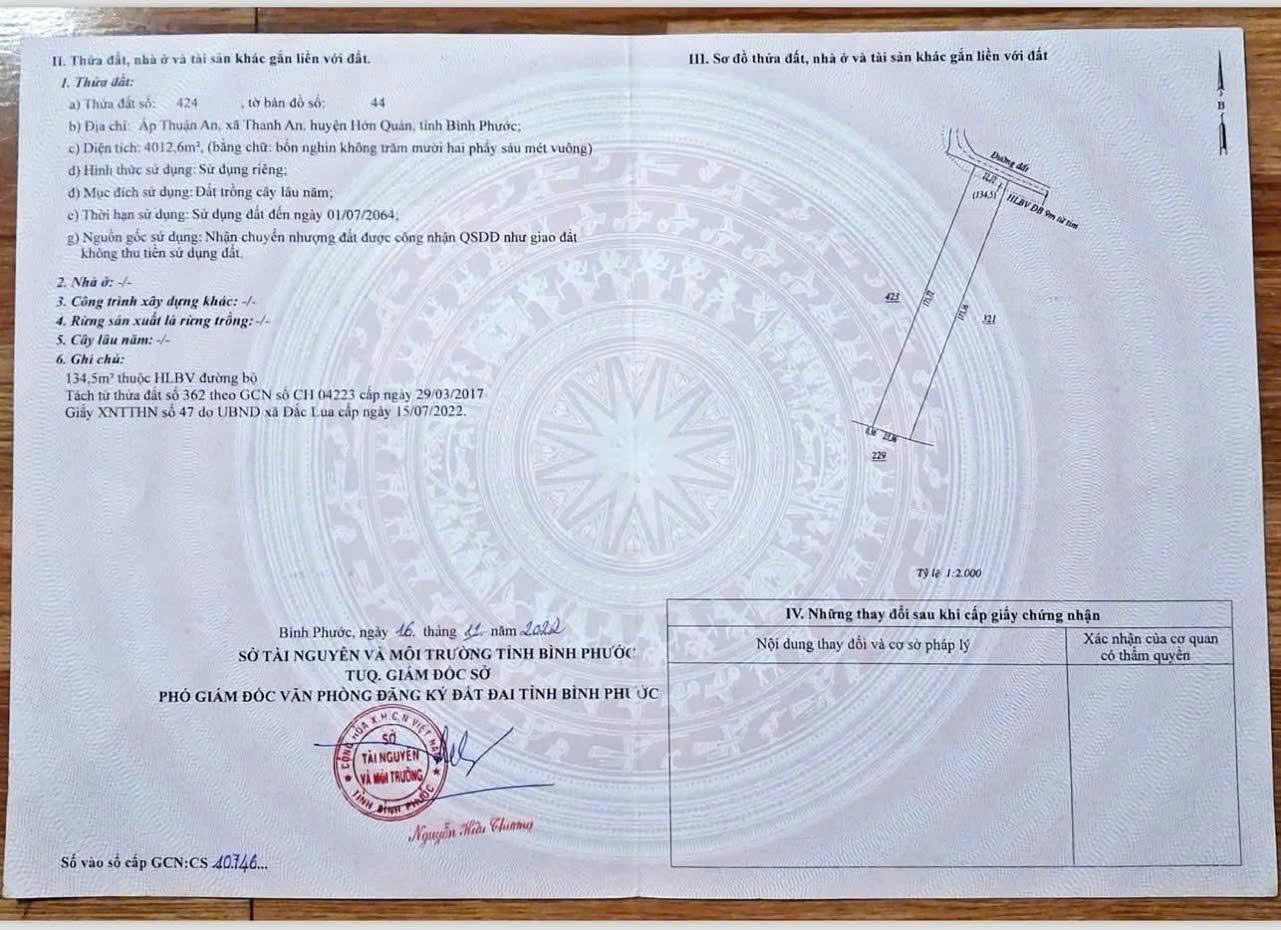 II. Thửa đất, nhà ở và tài sản khác gắn liền với đất.
1. Thửa đất:
a) Thửa đất số: 424 , tờ bản đồ số: 44
b) Địa chỉ: Ấp Thuận An, xã Thanh An, huyện Hớn Quản, tỉnh Bình Phước;
c) Diện tích: 4012,6m², (bằng chữ: bốn nghìn không trăm mười hai phẩy sáu mét vuông)
d) Hình thức sử dụng: Sử dụng riêng;
đ) Mục đích sử dụng: Đất trồng cây lâu năm;
e) Thời hạn sử dụng: Sử dụng đất đến ngày 01/07/2064;
g) Nguồn gốc sử dụng: Nhận chuyển nhượng đất được công nhận QSDĐ như giao đất
không thu tiền sử dụng đất.
2. Nhà ở: -/-
3. Công trình xây dựng khác: -/-
4. Rừng sản xuất là rừng trồng: -/-
5. Cây lâu năm: -/-
6. Ghi chú:
134,5m² thuộc HLBV đường bộ
Tách từ thửa đất số 362 theo GCN số CH 04223 cấp ngày 29/03/2017
Giấy XNTTHN số 47 do UBND xã Đắc Lua cấp ngày 15/07/2022.
Bình Phước, ngày 16. tháng 11. năm 2022
SỞ TÀI NGUYÊN VÀ MÔI TRƯỜNG TỈNH BÌNH PHƯỚC
TUQ. GIÁM ĐỐC SỞ
PHÓ GIÁM ĐỐC VĂN PHÒNG ĐĂNG KÝ ĐẤT ĐAI TỈNH BÌNH PHƯỚC
CỘNG HÒA X.H.C.N VIỆT NAM
SỞ
TÀI NGUYÊN
VÀ MÔI TRƯỜNG
TỈNH BÌNH PHƯỚC
Nguyễn Hữu Thương
Số vào sổ cấp GCN:CS 10746...
III. Sơ đồ thửa đất, nhà ở và tài sản khác gắn liền với đất
B
Đường đất
(134.5)
HLBV ĐB 9m từ tim
423
321
229
Tỷ lệ 1:2.000
IV. Những thay đổi sau khi cấp giấy chứng nhận
Nội dung thay đổi và cơ sở pháp lý
Xác nhận của cơ quan
có thẩm quyền